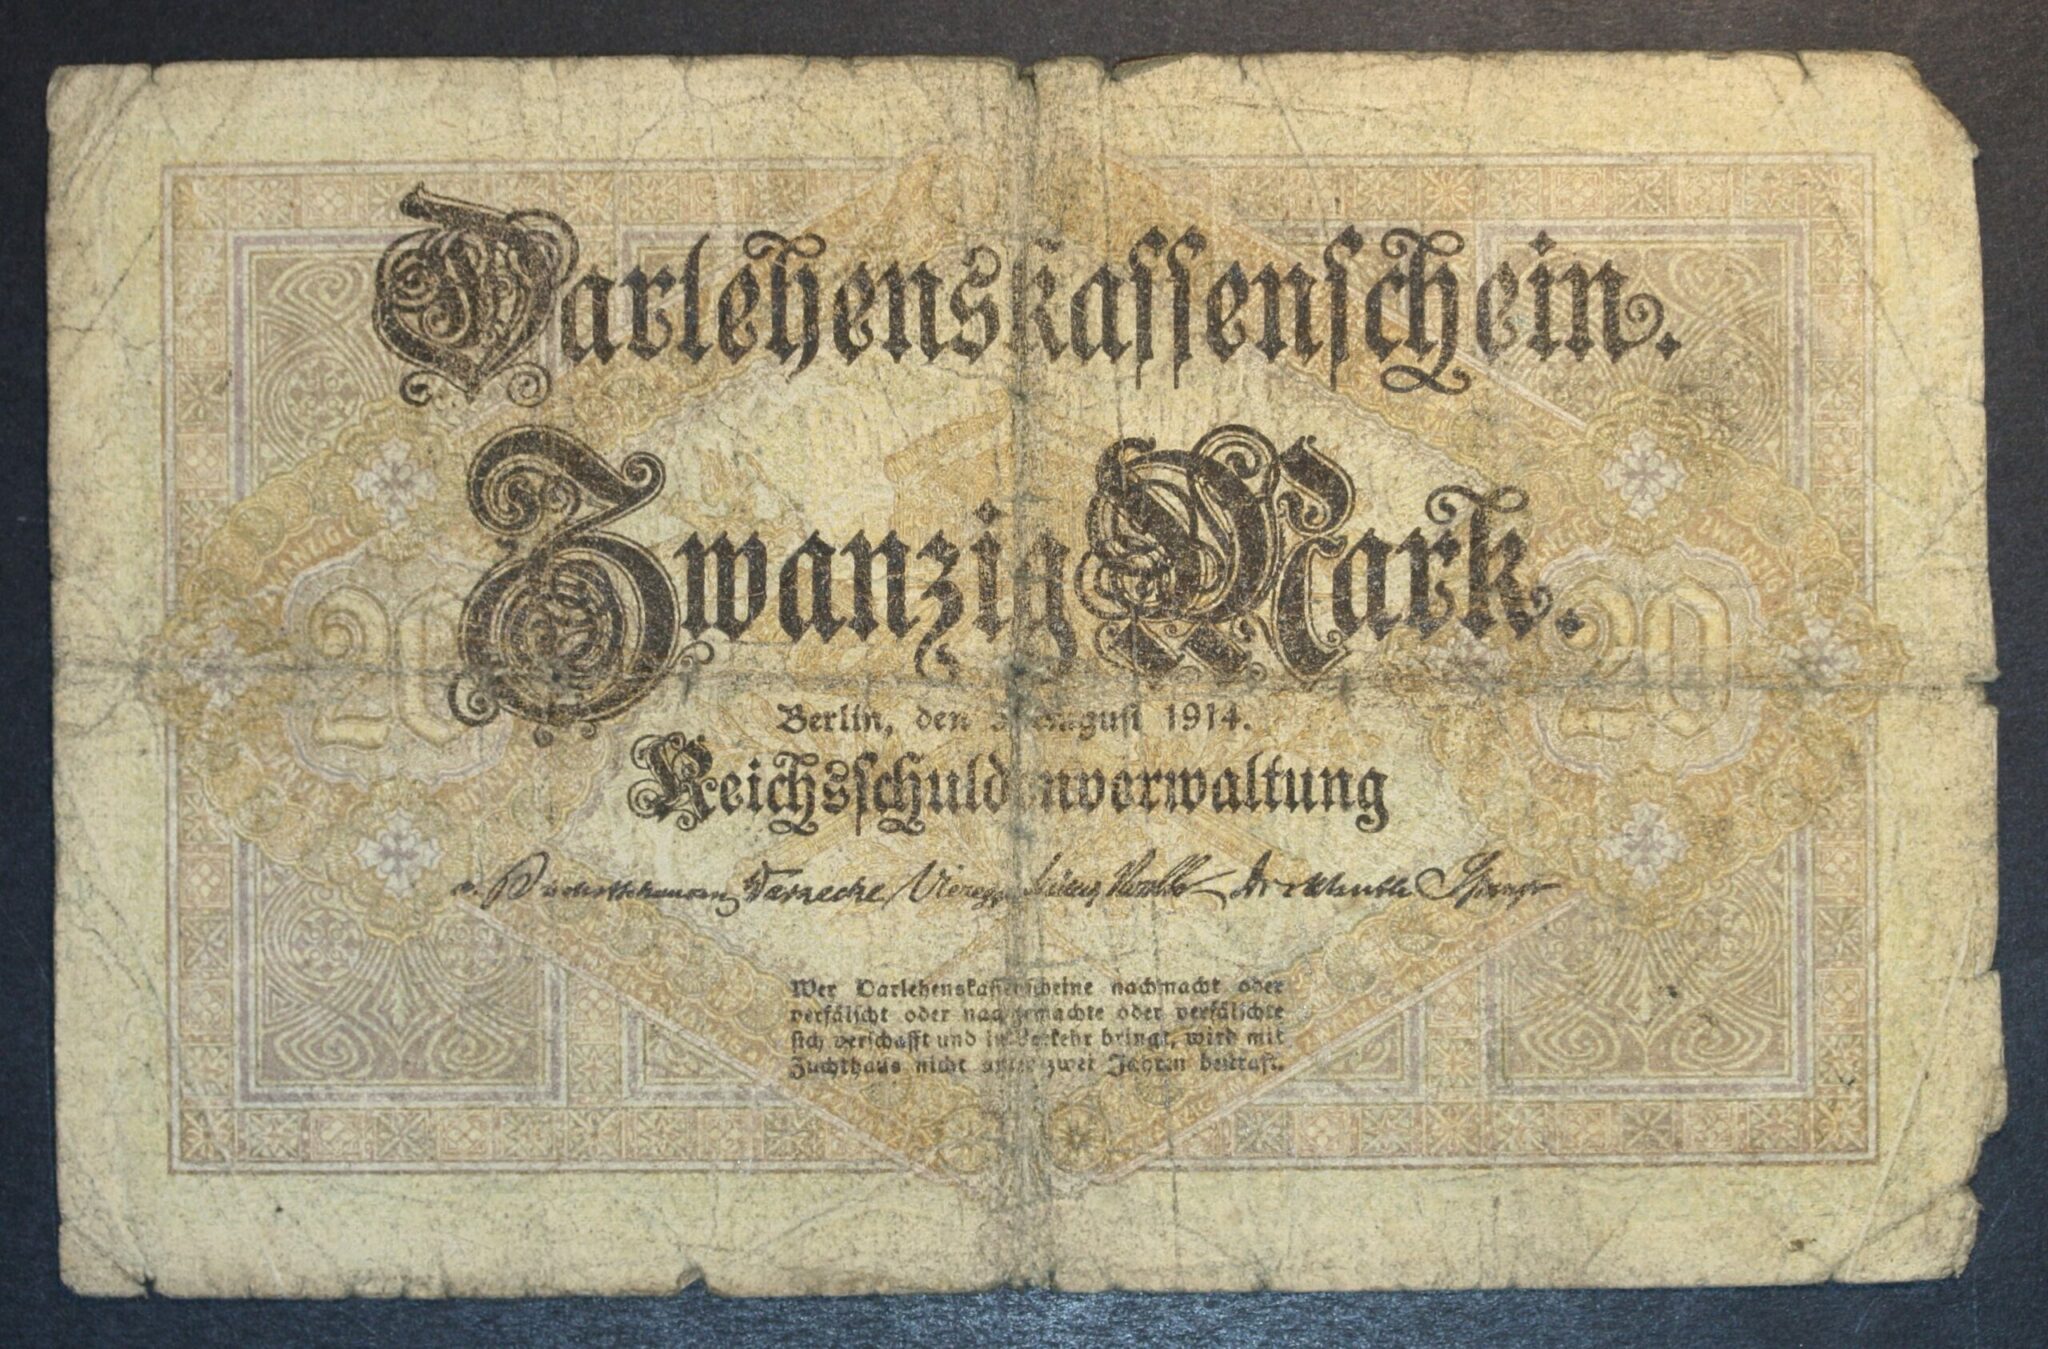 Darlehenskassenschein.
Zwanzig Mark.
20
20
Berlin, den August 1914.
Reichsschuldenverwaltung
Warnecke Vieregge
Wer Darlehenskassenscheine nachmacht oder
verfälscht oder nachgemachte oder verfälschte
sich verschafft und in Verkehr bringt, wird mit
Zuchthaus nicht unter zwei Jahren bestraft.